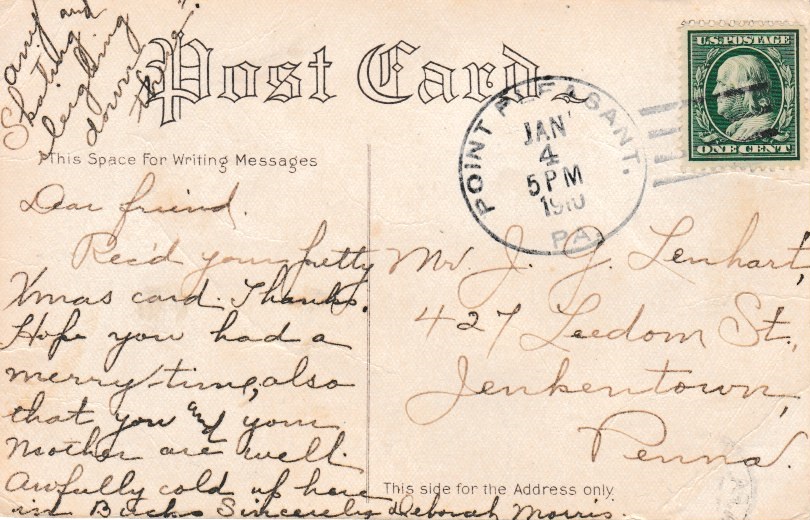 any and
Skating
sleighing
down
there?
Post Card
U.S. POSTAGE
ONE CENT
POINT PLEASANT.
JAN
4
5 PM
1910
PA.
This Space For Writing Messages
Dear friend.
Rec'd your pretty
Xmas card. Thanks.
Hope you had a
merry time, also
that you and your
Mother are well.
Awfully cold up here
in Bucks Sincerely Deborah Morris.
Mr. J. G. Lenhart,
427 Leedom St.,
Jenkentown,
Penna.
This side for the Address only